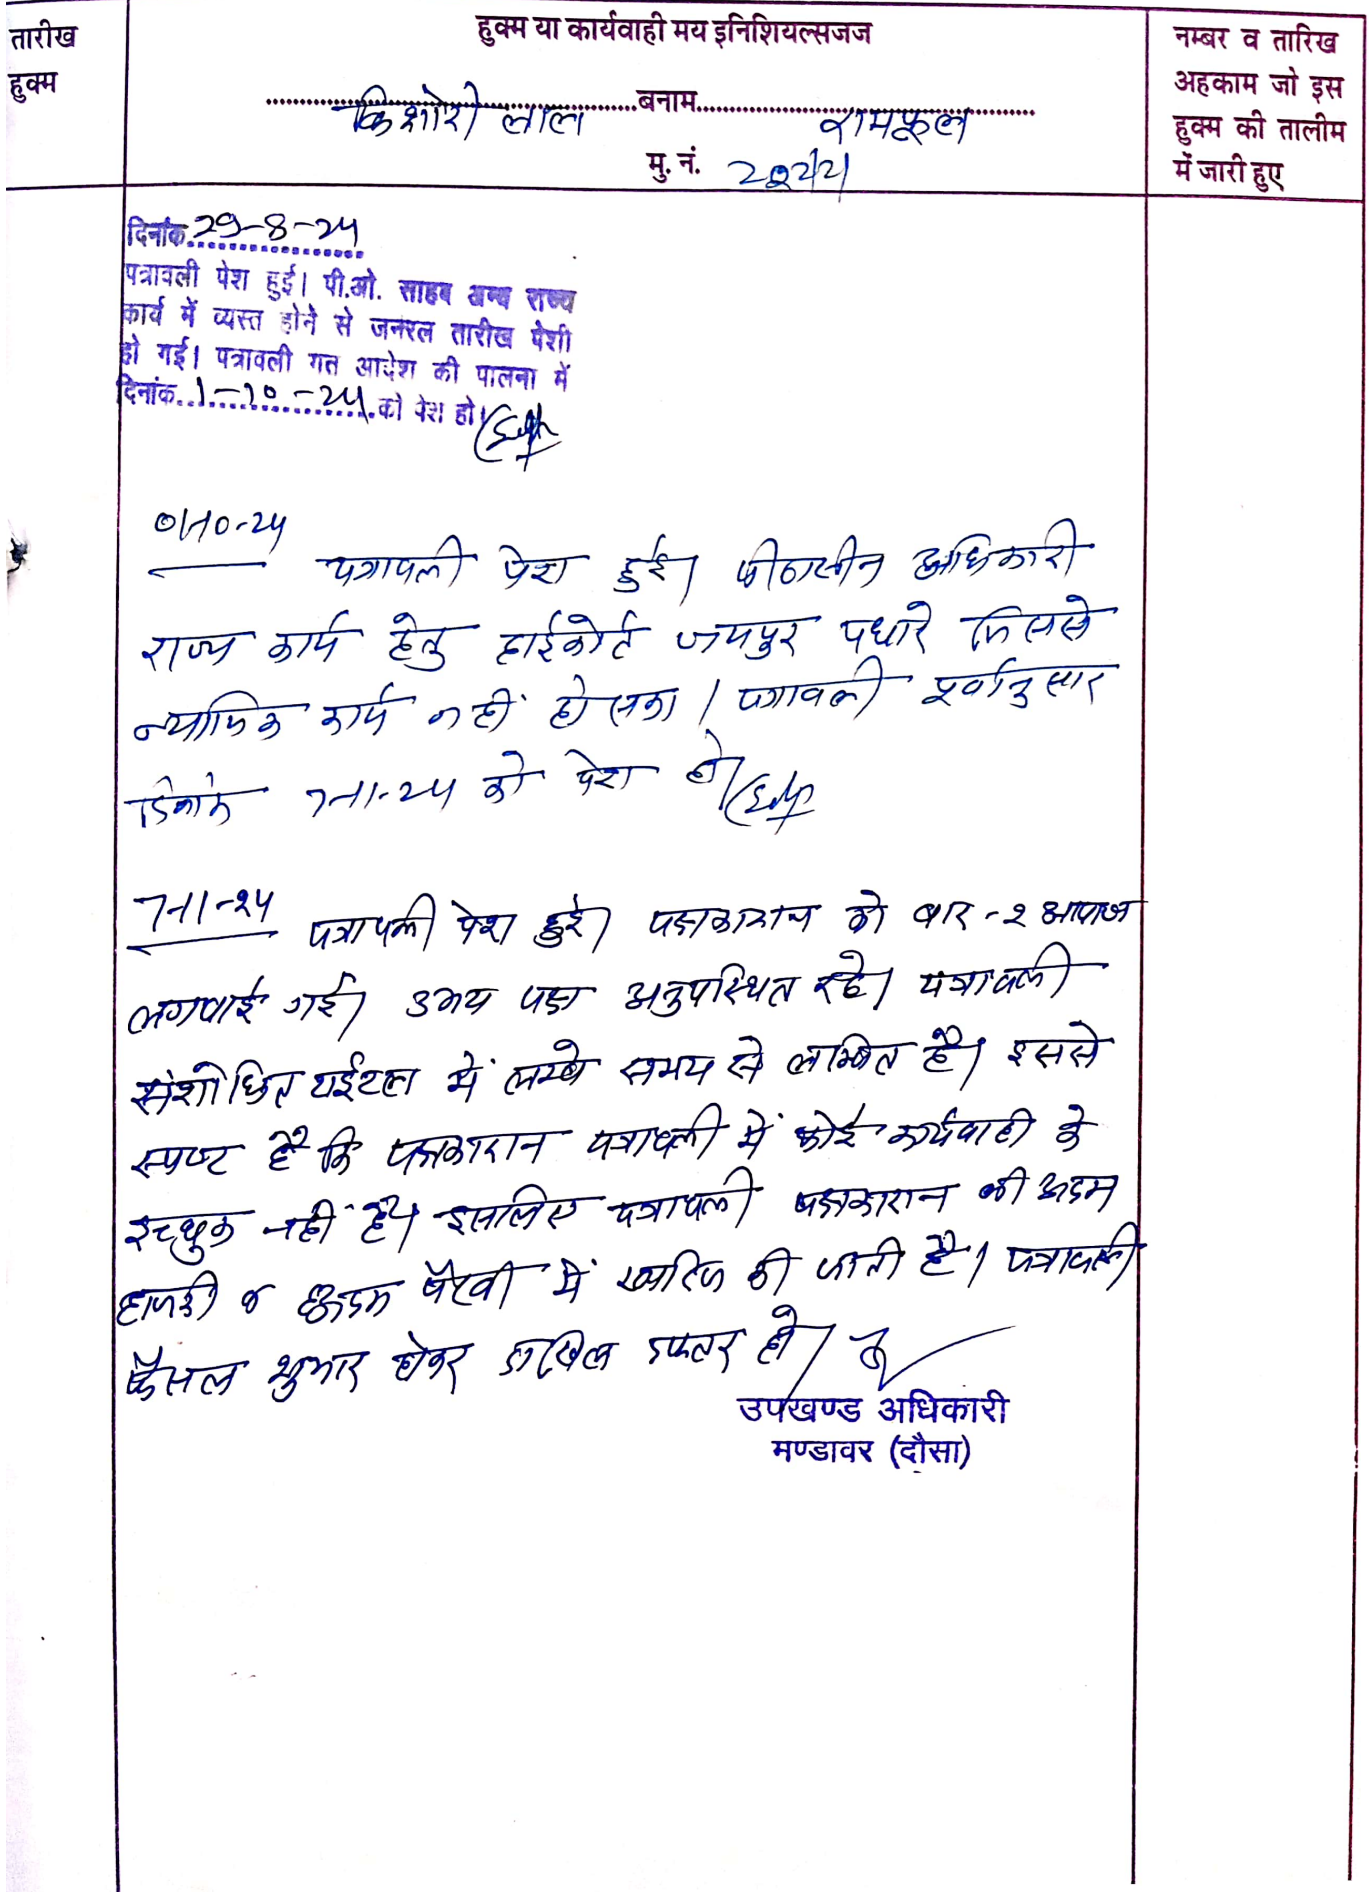 तारीख
हुक्म
हुक्म या कार्यवाही मय इनिशियल्सजज
नम्बर व तारिख
अहकाम जो इस
हुक्म की तालीम
में जारी हुए
किशोरी लाल बनाम रामफूल
मु. नं.
दिनांक 29-8-24
पत्रावली पेश हुई। पी.ओ. साहब अन्य राज्य
कार्य में व्यस्त होने से जनरल तारीख पेशी
हो गई। पत्रावली गत आदेश की पालना में
दिनांक 1-10-24 को पेश हो।
01-10-24
पत्रावली पेश हुई। पीठासीन अधिकारी
राज्य कार्य हेतु हाईकोर्ट जयपुर पधारे जिससे
न्यायिक कार्य नहीं हो सका। पत्रावली पूर्वानुसार
दिनांक 7-11-24 को पेश हो।
7-11-24
पत्रावली पेश हुई। पक्षकारान को बार-२ आवाज
लगवाई गई। उभय पक्ष अनुपस्थित रहे। पत्रावली
संशोधित टाईटल में लम्बे समय से लम्बित है। इससे
स्पष्ट है कि पक्षकारान पत्रावली में कोई कार्यवाही के
इच्छुक नहीं है। इसलिए पत्रावली पक्षकारान की अदम
हाजरी व अदम पैरवी में खारिज की जाती है। पत्रावली
फैसल शुमार होकर दाखिल दफ्तर हो।
उपखण्ड अधिकारी
मण्डावर (दौसा)